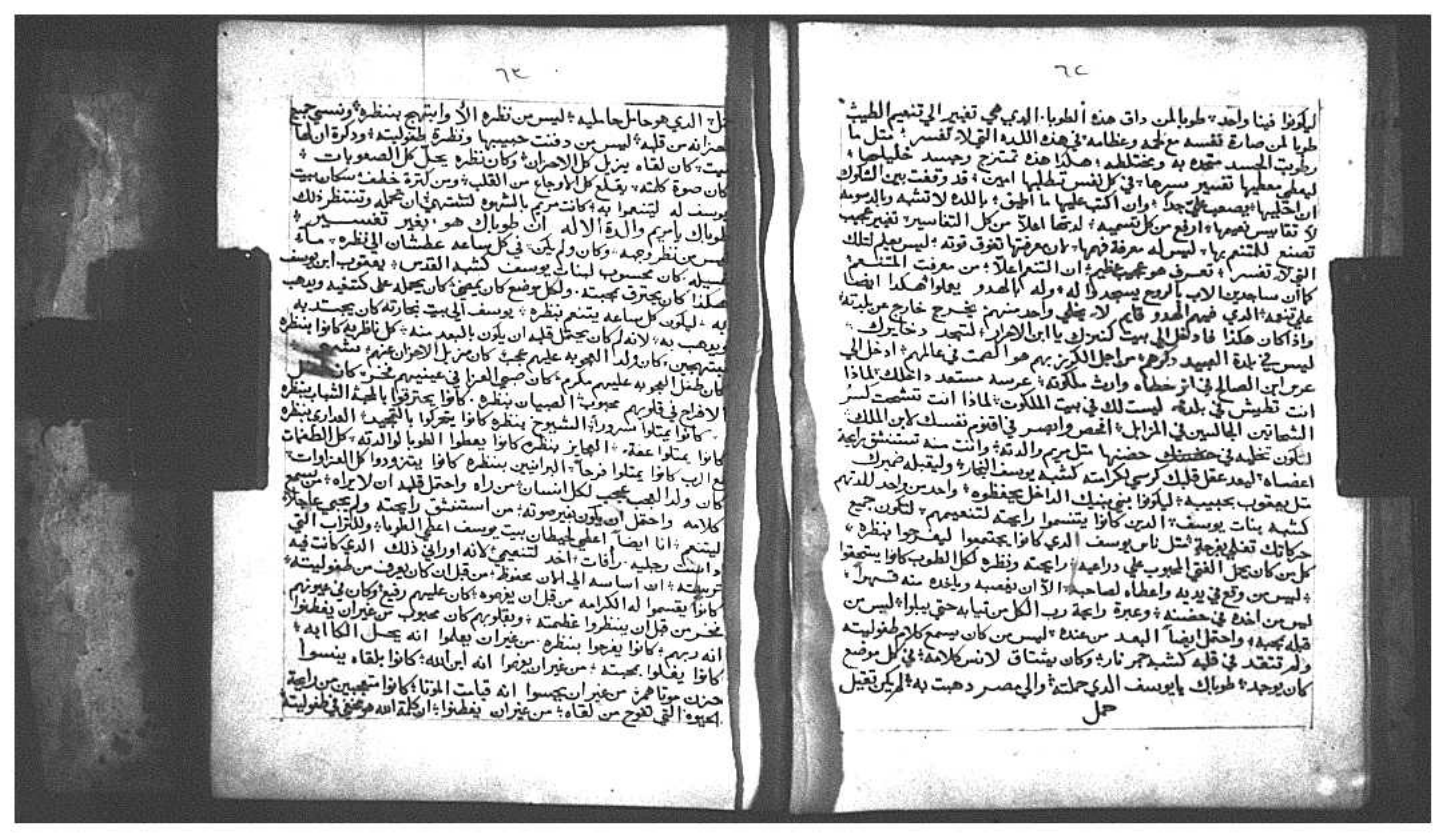 ٦٢
ليكونوا فينا واحد؛ طوبا لمن داق هده الطوبا. الدي هي تغيير الي تنعيم الطيبث
طوبا لمن صارة نفسه مع لحمه وعظامه؛ في هده اللده التي لا تفسر؛ متل ما
رطوبت الجسد متحده به ومختلطه؛ هكدا هده تمتزج وجسد خليلها؛
ليعلم معطيها تفسير سرها؛ في كل نفس تطلبها امين؛ قد وقفت بين الشكوك
ان اخليها؛ يصعب علي جداً؛ وان اكتب عليها ما اطيق؛ باللده لا تشبه وبالرسومه
لا تقاس نعيمها؛ ارفع من كل تسميه؛ لدتها اعلا من كل التفاسير؛ تغيير عجيب
تصنع للمتنعم بها؛ ليس له معرفة فيها؛ لان معرفتها تفوق قوته؛ ليس يعلم لتلك
التي لا تفسر؛ تعسرف هو عجوب عظيم؛ ان التنعم اعلا؛ من معرفت المتنعم؛
كما ان ساجدين الاب بالروح يسجدوا له؛ وله بالهدو يعملوا هكدا ايضا
علي تنعمه؛ الدي فيهم الهدو قايم لا يخلي واحد منهم؛ يخرج خارج عن بلدته؛
وادا كان هكدا فادخل الي بيت كنوزك يا ابن الاحرار؛ لتجد دخايرك؛
ليس في بلدة العبيد دكرهم؛ من اجل الكريز بهم هو الصمت في عالمهم؛ ادخل الي
عرس ابن الصالح في ارخطاه وارث ملكوته؛ عرسه مستعد داخلك؛ لمادا
انت تطيش في بلدة ليست لك في بيت الملكوت؛ لمادا انت تشحت لسر
الشحاتين الجالسين في المزابل؛ افحص وابصر في اقنوم نفسك لابن الملك
لتكون تخليه في حضنها متل مريم والدته؛ وانت منه تستنشق رايحة
اعضاه؛ ليعد عقل قلبك كرسي لكرامته كشبه يوسف النجار؛ وليقبله ضميرك
متل يعقوب بحبيبه؛ ليكونوا بني بيتك الداخل يحفظوه؛ واحد من واحد للدتهم
كشبه بنات يوسف؛ الدين كانوا يتنسموا رايحته لتنعيمهم؛ لتكون جميع
حركاتك تغلي بفرحة؛ متل ناس يوسف الدي كانوا يجتمعوا ليفرحوا بنظره؛
كل من كان يحل الفتي المحبوب علي دراعيه؛ رايحته ونظره لكل الطوب كانوا يستحقوا
؛ ليس من وقع في يديه واعطاه لصاحبه؛ الا ان يغصبه وياخده منه قسراً؛
ليس من اخده في حضنه؛ وعبرة رايحة رب الكل من تيابه حتي يبلوا؛ ليس من
قبله بمحبه؛ واحتمل ايضاً البعد من عنده؛ ليس من كان يسمع كلام طفوليته
ولم تتقد في قلبه كشبه جمر نار؛ وكان يشتاق لانس كلامه؛ في كل موضع
كان يوجد؛ طوباك يا يوسف الدي حملته؛ والي مصر دهبت به؛ لم يكن تقيل
حمل
٦٣
حمل؛ الدي هو حامل حامليه؛ ليس من نظره الا وابتهج بنظره؛ ونسي جميع
احزانه من قلبه؛ ليس من دفنت حبيبها ونظرة طفوليته؛ ودكرة ان لها
ميت؛ كان لقاه يزيل كل الاحزان؛ وكان نظره يحل كل الصعوبات؛
كان صوة كلمته؛ يقلع كل الاوجاع من القلب؛ ومن كترة خطف سكان بيت
يوسف له ليتنعموا به؛ كانت مريم بالشهوه لتشتهي؛ ان تحمله وتنتظر دلك
طوباك يا مريم والدة الاله ان طوباك هو بغير تفسير؛
ليس من نظر وجهه وكان ولم يكن في كل ساعه عطشان الي نظره
كان محسوب لبنات يوسف كشبه القدس؛ يعقوب ابن يوسف
هكدا كان يحترق بمحبته. ولكل موضع كان يمضي؛ كان يحمله علي كتفيه ويدهب
به؛ ليكون كل ساعه يتنعم بنظره؛ يوسف الي بيت نجارته كان يجتدبه
ويدهب به؛ لانه لم كان يحتمل قلبه ان يكون بالبعد منه؛ كل ناظريه كانوا بنظره
مبتهجين؛ كان ولداً اعجوبه عليهم عجب؛ كان مزيل الاحزان عنهم؛
كان طفل اعجوبه عليهم مكرم؛ كان صبي العزا في عينيهم فخر؛ كان
الافراح في قلوبهم محبوب؛ الصبيان بنظره. كانوا يحترقوا بالمحبة الشباب بنظره
كانوا يمتلوا سروراً؛ الشيوح بنظره كانوا يتحركوا بالتمجيد؛ العداري بنظره
كانوا يمتلوا عفة؛ العجايز بنظره كانوا يعطوا الطوبا لوالدته؛ كل الطغمات
مع الرب كانوا يمتلوا فرحاً؛ البرانيين بنظره كانوا يتزودوا كل العزاوات؛
كان ولداً عجب عجيب لكل انسان؛ من راه واحتمل قلبه ان لا يراه؛ من سمع
كلامه واحتمل ان يكون بغير صوته؛ من استنشق رايحته ولم يجي عاجلاً
ليتنعم؛ انا ايضاً اعطي لحيطان بيت يوسف اعطي الطوبا؛ وللتراب التي
داست رجليه رافات؛ اخد لتنعيمي؛ لانه اوراني دلك الدي كانت فيه
تربيته؛ ان اساسه الي الان محفوظ؛ من قبل ان كان يعرف من طفوليته؛
كانوا يقسموا له الكرامه من قبل ان يفرحوه؛ كان عليهم رفيع؛ وكان في عيونهم
فخر من قبل ان ينظروا عظمته؛ وبقلوبهم كان محبوب من غير ان يفطنوا
انه ربهم؛ كانوا يفرحوا بنظره. من غير ان يعلموا انه يحل الكاابه؛
كانوا يغلوا بمحبته؛ من غير ان يعرفوا انه ابن الله؛ كانوا بلقاه ينسوا
حزن موتاهم؛ من غير ان يحسوا انه قيامت الموتا؛ كانوا متعجبين من رايحة
الحيوه التي تفوح من لقاه؛ من غير ان يفطنوا؛ ان كلمة الله هو مختفي في طفوليته